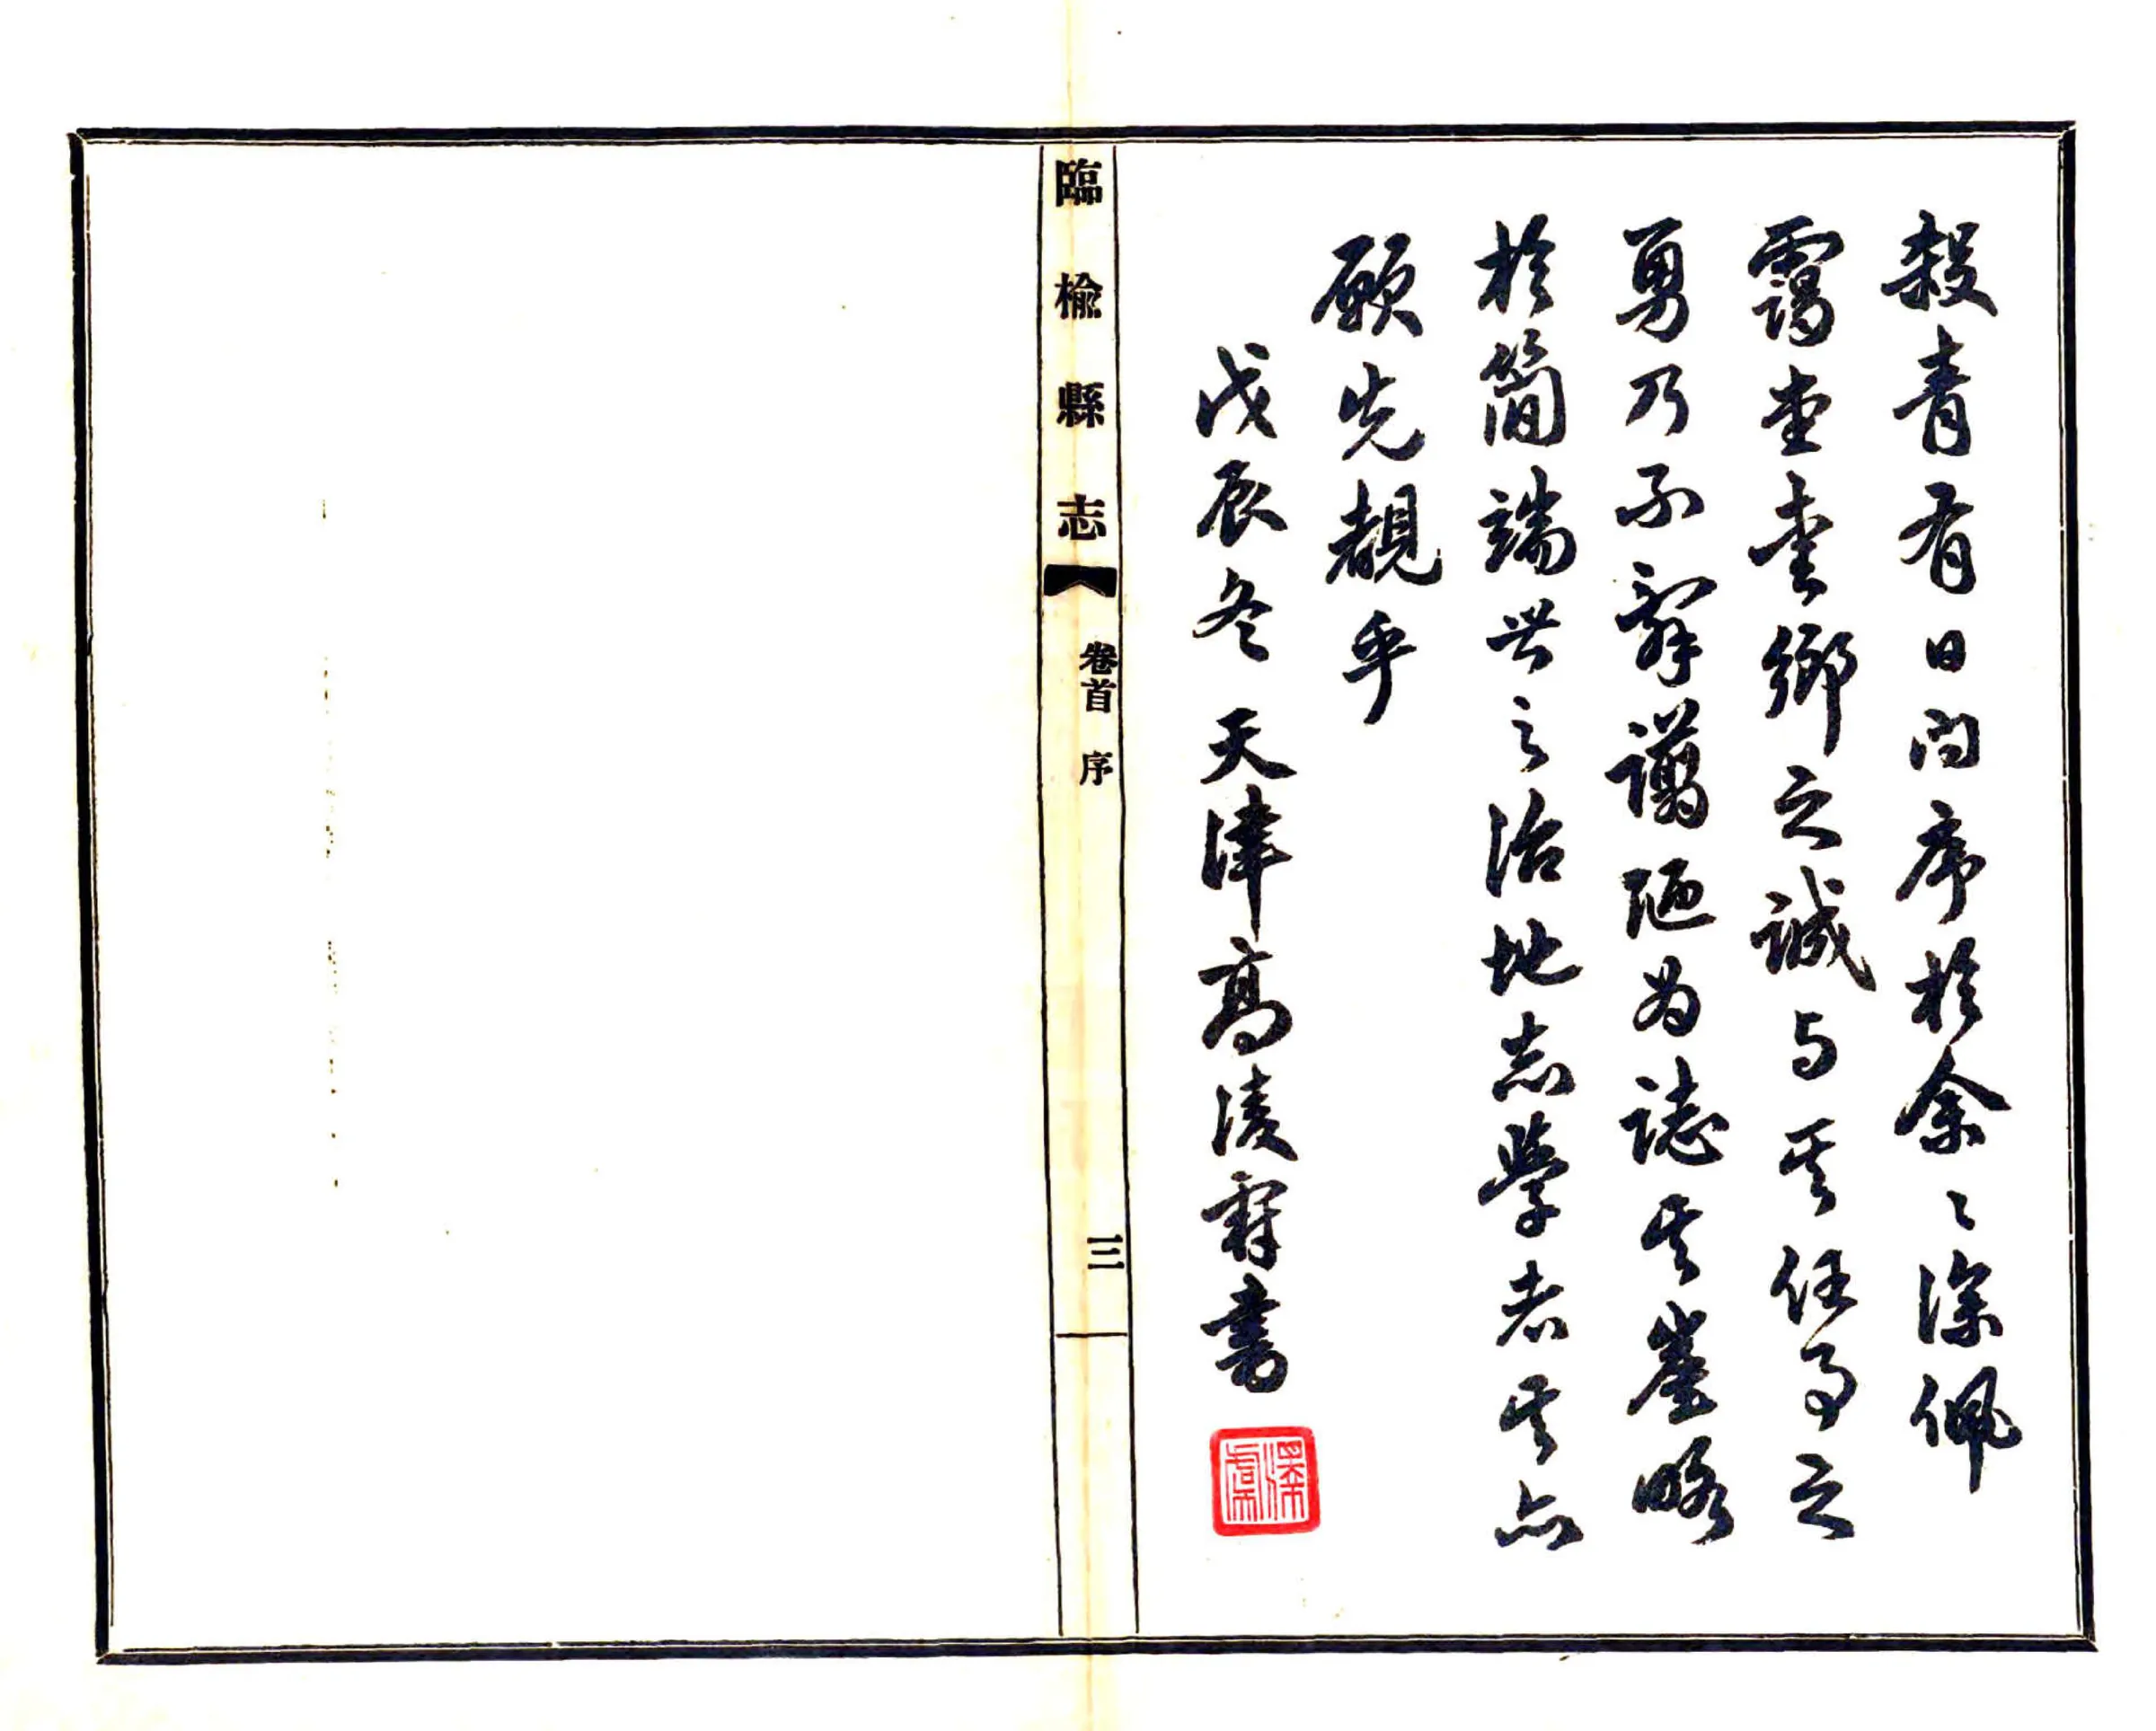 殺青有日問序於余〻深佩
靄堂愛鄉之誠与其任事之
勇乃不辭謭陋為誌其崖略
於簡端世之治地志學者其亦
願先覩乎
戊辰冬天津高凌霨書
臨榆縣志 卷首 序 三